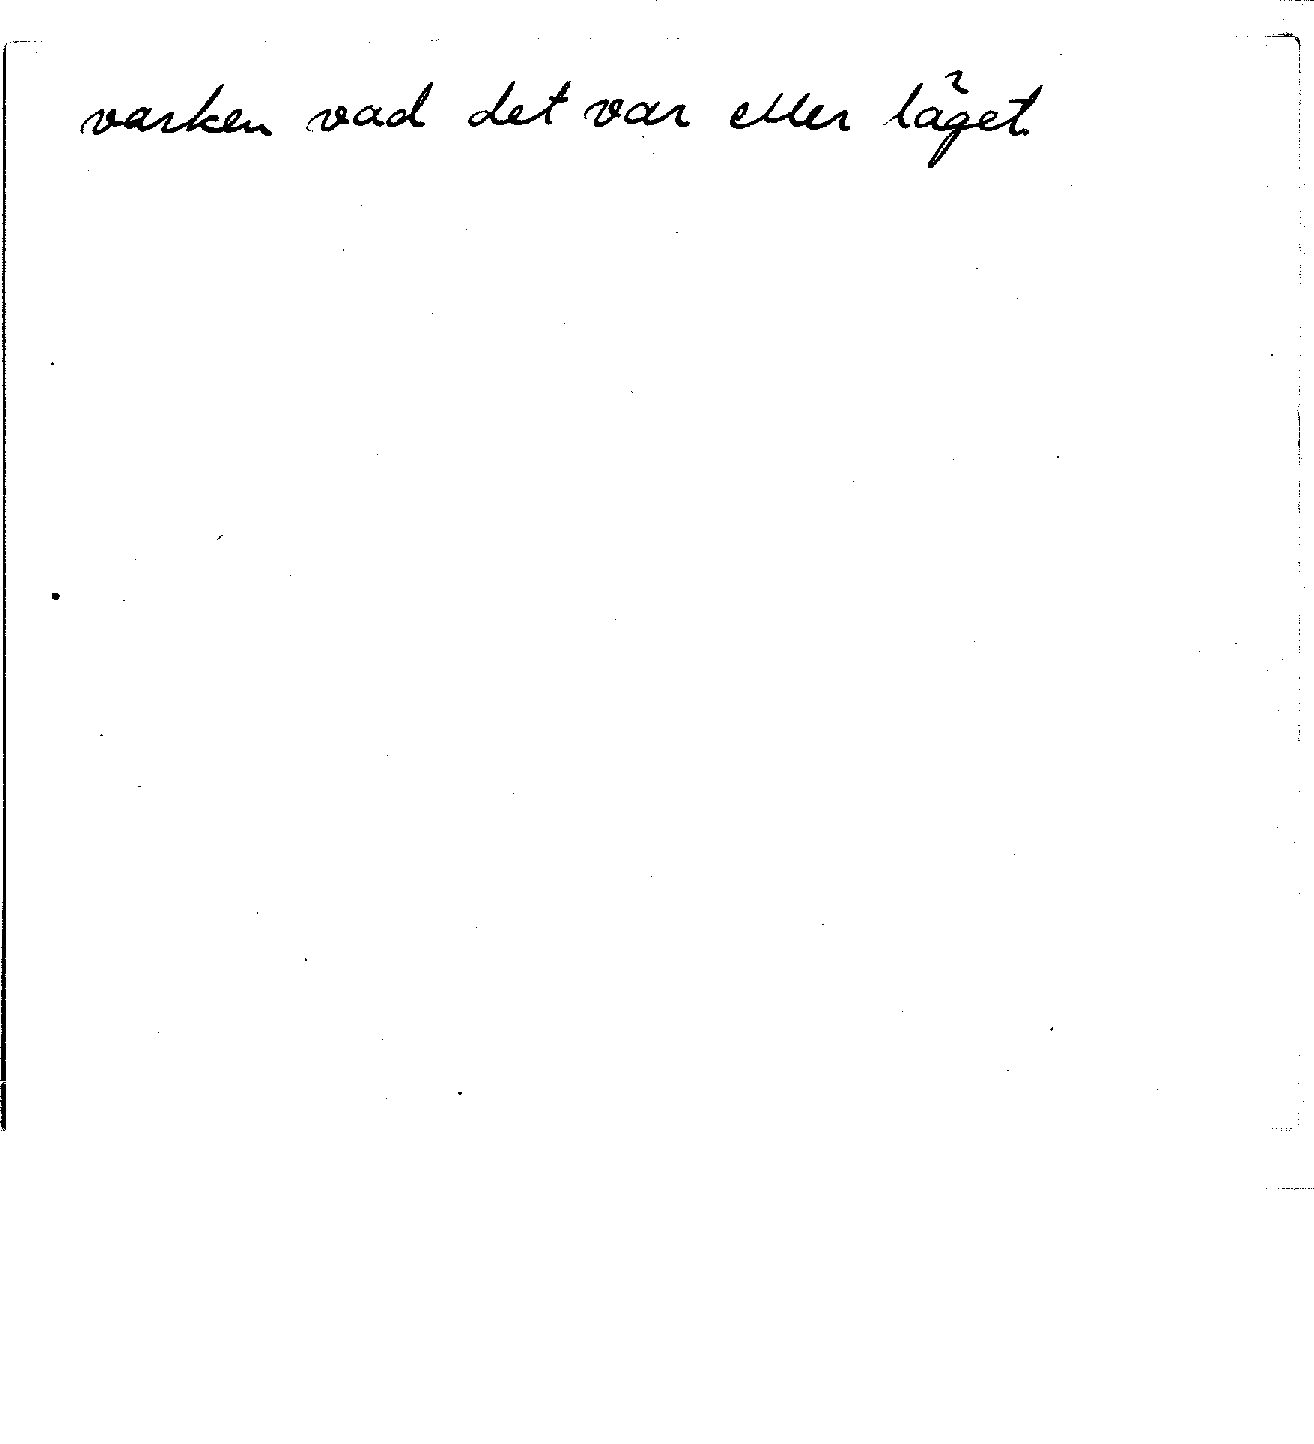 varken vad det var eller läget.